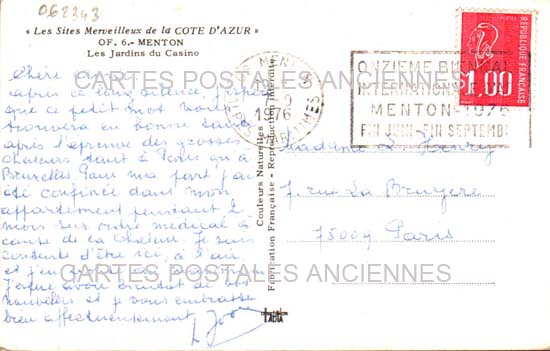 062343
« Les Sites Merveilleux de la COTE D'AZUR »
OF. 6.- MENTON
Les Jardins du Casino
Chère
après ce long silence, j'espère
que ce petit mot vous
trouvera en bonne santé
après l'épreuve des grosses
chaleurs tant à Paris qu'à
Bruxelles Pour ma part j'ai
été confinée dans mon
appartement pendant le
mois sur ordre médical à
cause de la chaleur. Je suis
contente d'être ici, à l'air
et j'en
J'espère avoir bientôt de vos
nouvelles et je vous embrasse
bien affectueusement
Couleurs Naturelles
Fabrication Française - Reproduction Interdite
MENTON
9
1976
ALPES MARITIMES
ONZIEME BIENNALE
INTERNATIONALE
MENTON-1976
FIN JUIN-FIN SEPTEMBRE
POSTES
1.00
REPUBLIQUE FRANÇAISE
Madame L. Henry
7. rue La Bruyere
75009 Paris
CARTES POSTALES ANCIENNES
CARTES POSTALES ANCIENNES